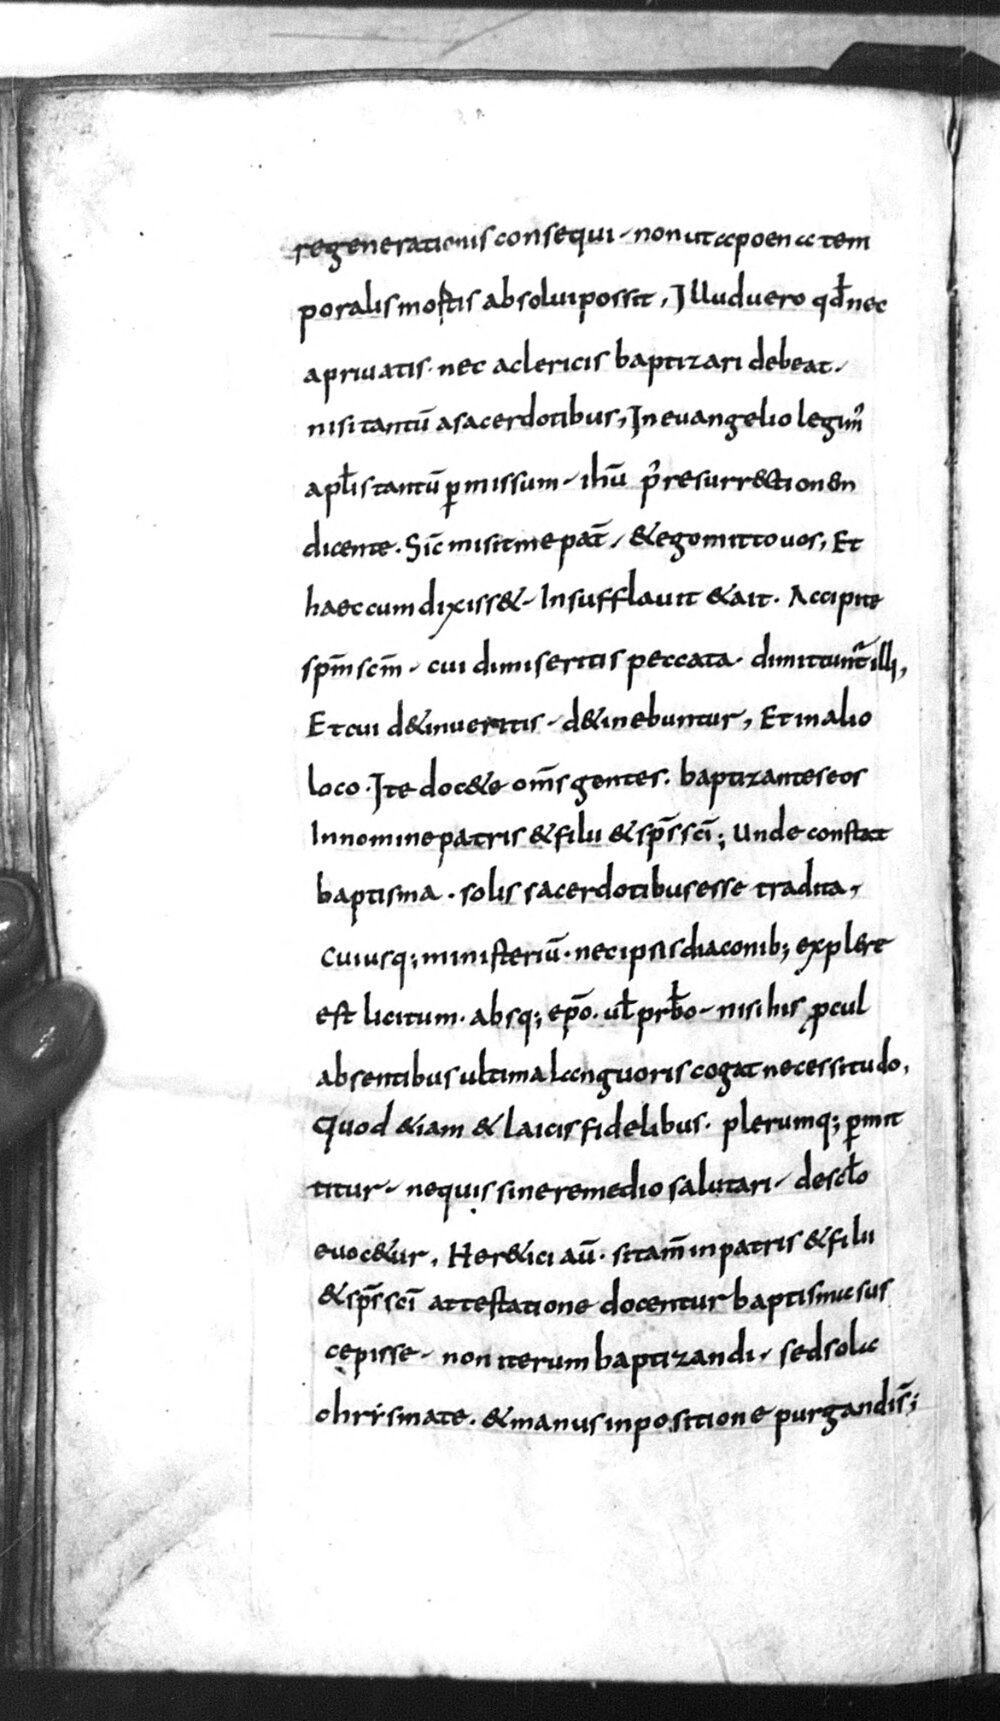 regenerationis consequi · non ut a poena tem
poralis mortis absolui possit, Illud uero qđ nec
a priuatis · nec a clericis baptizari debeat ·
nisi tantū a sacerdotibus, In euangelio legim᾿
apłis tantū ꝑmissum · ihū p᾿ resurrection&#x65;n
dicente · Sic̄ misit me pat̄ · & ego mitto uos, Et
haec cum dixiss& · Insufflauit & ait · Accipite
spm̄ scm̄ · cui dimiseritis peccata · dimittunt᾿ illi,
Et cui d&inueritis · d&inebuntur, Et in alio
loco · Ite doc&e om̄s gentes · baptizantes eos
In nomine patris & filii & sps̄ sci̅; Unde constat
baptisma · solis sacerdotibus esse tradita,
Cuiusq; ministeriū · nec ipsis diaconib; explere
est licitum · absq; epō · uł prƀo · nisi his ꝓcul
absentibus ultima languoris cogat necessitudo,
Quod &iam & laicis fidelibus · plerumq; ꝑmit
titur · ne quis sine remedio salutari · de scło
euoc&ur, Her&ici aū · si tam̄ in patris & filii
& sps̄ sci̅ attestatione docentur baptisma sus
cepisse · non iterum baptizandi · sed sola
chrismate · & manus inpositione purgandis̄;